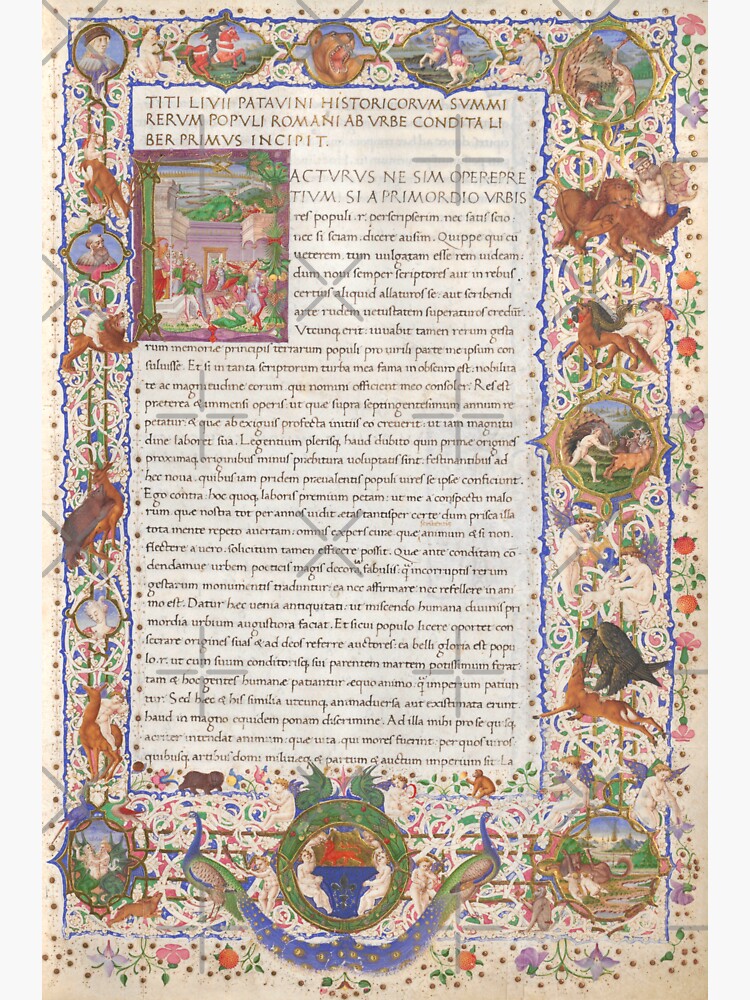 TITI LIVII PATAVINI HISTORICORVM SVMMI
RERVM POPVLI ROMANI AB VRBE CONDITA LI
BER PRIMVS INCIPIT.
ACTVRVS NE SIM OPEREPRE
TIVM: SI A PRIMORDIO VRBIS
res populi .r. perscripserim nec satis scio:
nec si sciam: dicere ausim. Quippe qui cũ
ueterem: tum uulgatam esse rem uideam:
dum noui semper scriptores aut in rebus
certius aliquid allaturos se: aut scribendi
arte rudem uetustatem superaturos credũt.
Vtcunq; erit: iuuabit tamen rerum gesta
rum memoriæ principis terrarum populi pro uirili parte me ipsum con
suluisse. Et si in tanta scriptorum turba mea fama in obscuro est: nobilita
te ac magnitudine eorum: qui nomini officient meo consoler. Res est
præterea & immensi operis: ut que supra septingentesimum annum re
petatur: & que ab exiguis profecta initiis eo creuerit: ut iam magnitu
dine laboret sua. Legentium plerisq; haud dubito quin primæ origines
proximaq; originibus minus præbitura uoluptatis sint: festinantibus ad
hec noua: quibus iam pridem præualentis populi uires se ipse conficiunt.
Ego contra: hoc quoq; laboris premium petam: ut me a conspectu malo
rum que nostra tot per annos uidit: ætas tantisper certe dum prisca illa
tota mente repeto auertam: omnis expers curæ que scribentis animum & si non
flectere a uero: solicitum tamen efficere possit. Que ante conditam cõ
dendamue urbem poeticis magis decora fabulis: q̃ incorruptis rerum
gestarum monumentis traduntur: ea nec affirmare nec refellere in ani
mo est. Datur hec uenia antiquitati: ut miscendo humana diuinis pri
mordia urbium augustiora faciat. Et si cui populo licere oportet con
secrare origines suas & ad deos referre auctores: ea belli gloria est popu
lo .r. ut cum suum conditorisq; sui parentem martem potissimum ferat:
tam & hoc gentes humanæ patiantur æquo animo: q̃ imperium patiun
tur. Sed hec & his similia utcunq; animaduersa aut existimata erunt:
haud in magno equidem ponam discrimine. Ad illa mihi pro se quisq;
acriter intendat animum: que uita: qui mores fuerint: per quos uiros
quibusq; artibus domi militiæq; & partum & auctum imperium sit. La